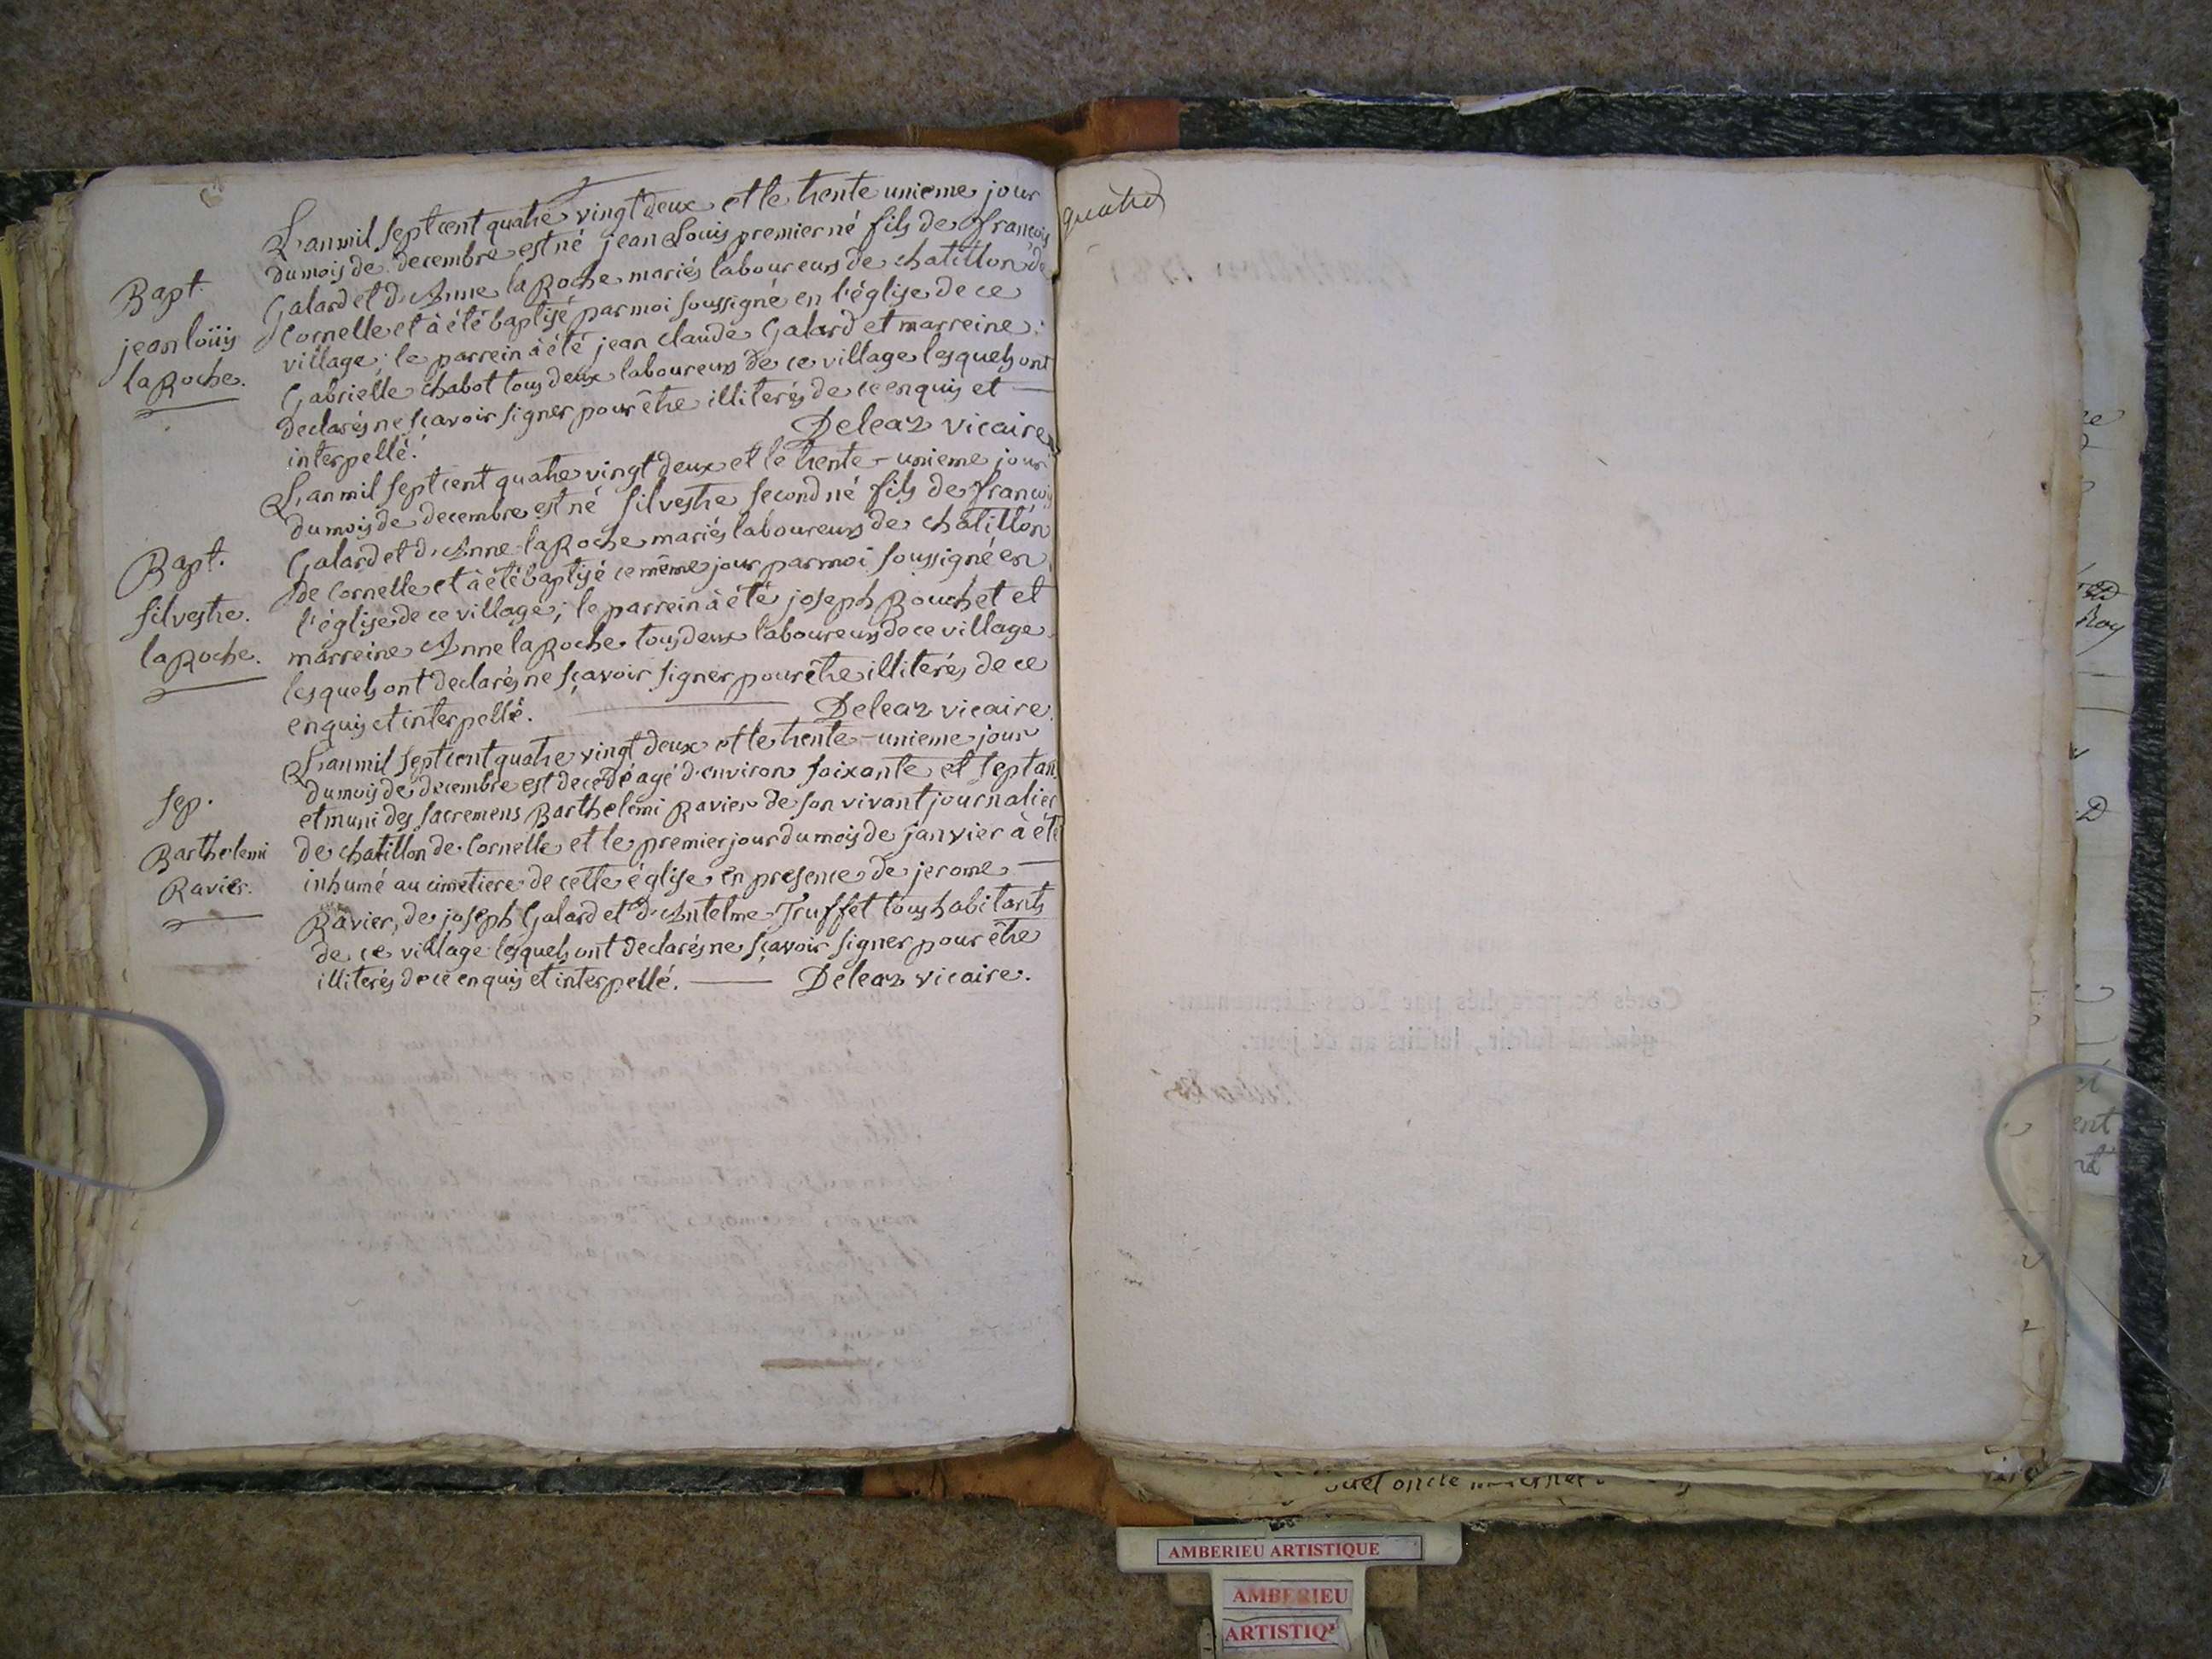 L'an mil sept cent quatre vingt deux et le trente unieme jour
du mois de decembre est né jean Louis premier né fils de françois
Galard et d'Anne la Roche mariés laboureurs de chatillon de
Cornelle et à été baptisé par moi soussigné en l'église de ce
village; le parrein à été jean claude Galard et marreine
Gabrielle chabot tous deux laboureurs de ce village lesquels ont
declarés ne sçavoir signer pour être illiterés de ce enquis et
interpellé. Deleaz vicaire
Bapt.
jean loüis
la Roche.
L'an mil sept cent quatre vingt deux et le trente-unieme jour
du mois de decembre est né silvestre second né fils de françois
Galard et d'Anne la Roche mariés laboureurs de chatillon
de Cornelle et à été baptisé ce même jour par moi soussigné en
l'église de ce village; le parrein à été joseph Bouchet et
marreine Anne la Roche tous deux laboureurs de ce village
lesquels ont declarés ne sçavoir signer pour être illiterés de ce
enquis et interpellé. Deleaz vicaire.
Bapt.
silvestre.
la Roche.
L'an mil sept cent quatre vingt deux et le trente-unieme jour
du mois de decembre est decédé agé d'environ soixante et sept ans
et muni des sacremens Barthelemi Ravier de son vivant journalier
de chatillon de Cornelle et le premier jour du mois de janvier à été
inhumé au cimetiere de cette église en presence de jerome
Ravier, de joseph Galard et d'Antelme Truffet tous habitants
de ce village lesquels ont declarés ne sçavoir signer pour être
illiterés de ce enquis et interpellé. Deleaz vicaire.
sep.
Barthelemi
Ravier.
quatre
AMBERIEU ARTISTIQUE
AMBERIEU
ARTISTIQ